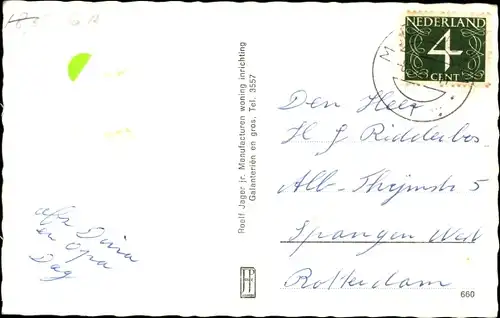 NEDERLAND
4
CENT
Den Heer
H J Ridderbos
Alb. Thijmstr 5
Spangen West
Rotterdam
afz Dina
en opa
Dag
Roelf Jager jr. Manufacturen woning inrichting
Galanteriën en gros. Tel. 3557
660